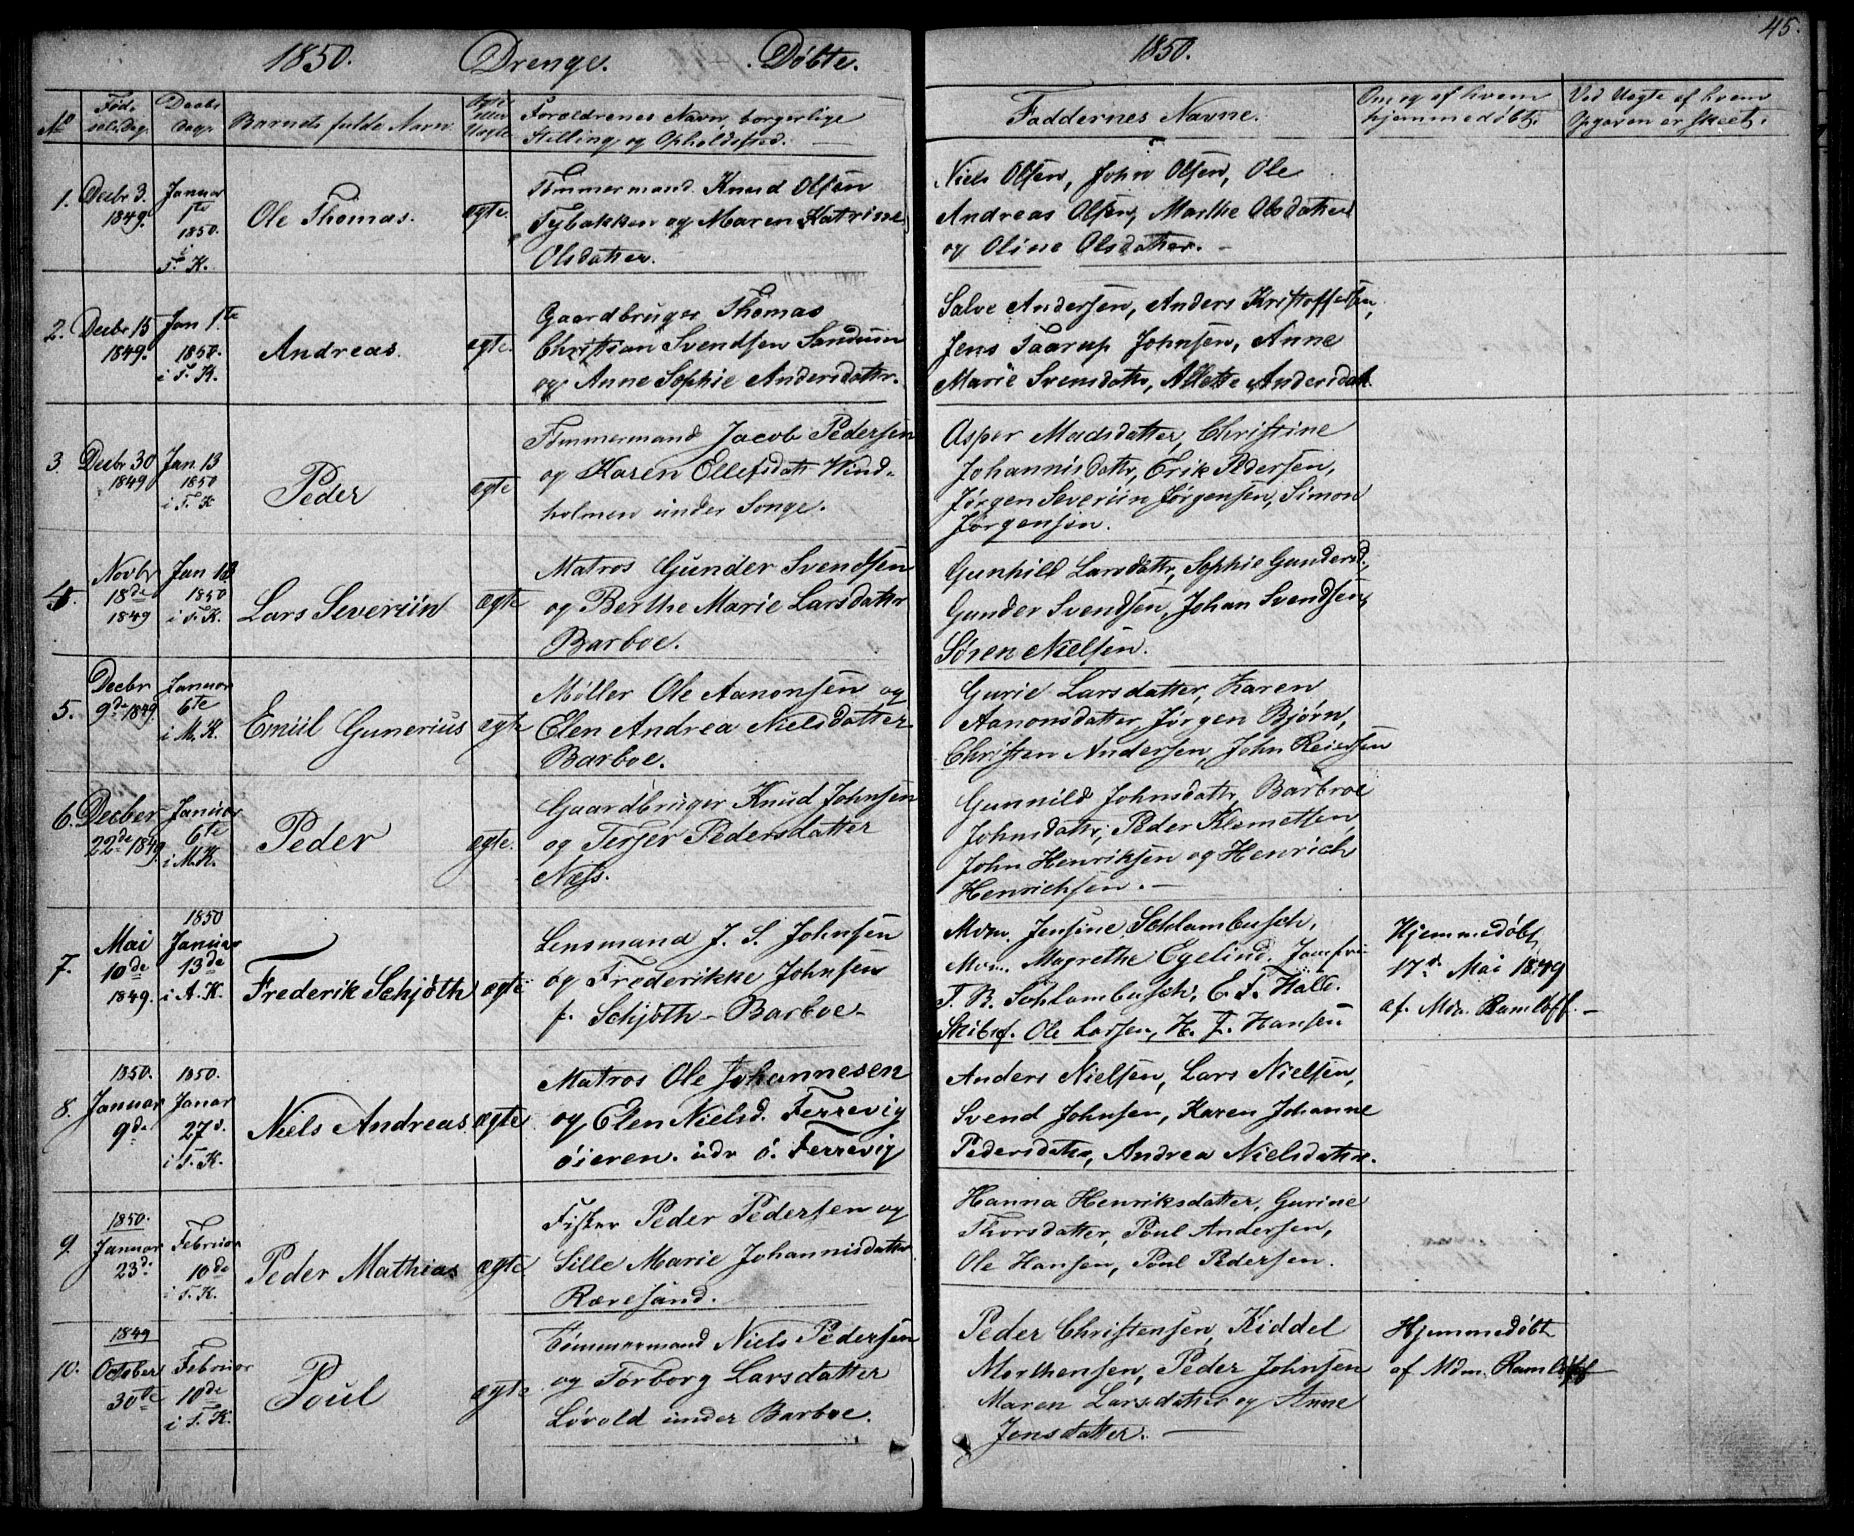 1850. Drenge. Døbte.
No
Fød-
sels Dag.
Daabs
Dag.
Barnets fulde Navn
Ægte
eller
Uægte
Forældrenes Navn, borgerlige
Stilling og Opholdssted.
1.
Decbr 3.
1849.
Januar
1te
1850.
i
T. K.
Ole Thomas.
ægte.
Tømmermand Knud Olsen
Tybakken og Maren Katrine
Olsdatter.
2.
Decbr 15
1849.
Jan 1.te
1850.
i T. K.
Andreas.
ægte.
Gaardbruger Thomas
Christian Svendsen Sandum
og Anne Sophie Andersdattr.
3.
Decbr 30
1849
Jan 13
1850
i T. K
Peder
ægte
Tømmermand Jacob Pedersen
og Karen Ellefsdattr Wind-
holmen under Songe.
4.
Novbr
18de
1849
Jan 13
1850
i T. K.
Lars Severiin
ægte
Matros Gunder Svendsen
og Berthe Marie Larsdatter
Barboe.
5.
Decbr
9de 1849.
Januar
6te
i M. K.
Emiil Gunerius
ægte
Møller Ole Aanonsen og
Elen Andrea Nielsdatter
Barboe.
6.
Decber
22de 1849.
Januar
6te
i M. K.
Peder
ægte.
Gaardbruger Knud Johnsen
og Terjer Pedersdatter
Næss.
7.
Mai
10de
1849.
1850
Januar
13de
i A. K.
Frederik Schjøth
ægte
Lensmand J. S. Johnsen
og Frederikke Johnsen
f. Schjøth - Barboe -
8.
1850.
Januar
9de
1850.
Janar
27d.
i T. K.
Niels Andreas.
ægte
Matros Ole Johannesen
og Elen Nielsd. Terrevig
øieren. udr ó. Terrevig
9.
1850.
Januar
23d.
Februar
10de
i T. K.
Peder Mathias
ægte
Fisker Peder Pedersen og
Sille Marie Johannisdatter
Rævesand.
10.
1849
October
30te
Februar
10de
i T. K.
Poul
ægte
Tømmermand Niels Pedersen
og Torborg Larsdatter
Løvold under Barboe.
45.
1850.
Faddernes Navne.
Om og af hvem
hjemmedøbt.
Ved Uægte af hvem
Opgaven er skeet.
Niels Olsen, John Olsen, Ole
Andreas Olsen, Marthe Olsdatter
og Oline Olsdatter. -
Salve Andersen, Anders Kristoffersen,
Jens Taarup Johnsen, Anne
Marie Svensdatr, Allette Andersdat.
Asper Madsdatter, Christine
Johannisdatr, Erik Pedersen,
Jørgen Severiin Jørgensen, Simon
Jørgensen.
Gunhild Larsdatr, Sophie Gundersd.,
Gunder Svendsen, Johan Svendsen,
Søren Nielsen.
Gurie Larsdatter, Karen
Aanonsdatter, Jørgen Bjørn,
Christen Andersen, John Reiersen
Gunnild Johnsdatr, Barbroe
Johnsdatr, Peder Klemetsen,
John Henriksen og Henrich
Henrichsen. -
Mdm. Jensine Schlambusch,
Mdm. Magrethe Egelund, Jomfru
T. B. Schlambusch, E. F. Hall.
Skibsf. Ole Larsen, H. J. Hansen
Hjemmedøbt
17d. Mai 1849
af Mdm. Ramløff. -
Anders Nielsen, Lars Nielsen,
Svend Johnsen, Karen Johanne
Pedersdatr, Andrea Nielsdatr.
Hanna Henriksdatter, Gurine
Thorsdatter, Poul Andersen,
Ole Hansen, Poul Pedersen.
Peder Christensen, Kiddel
Morthensen, Peder Johnsen
Maren Larsdatter og Anne
Jensdatter. -
Hjemmedøbt
af Mdm. Ramløff